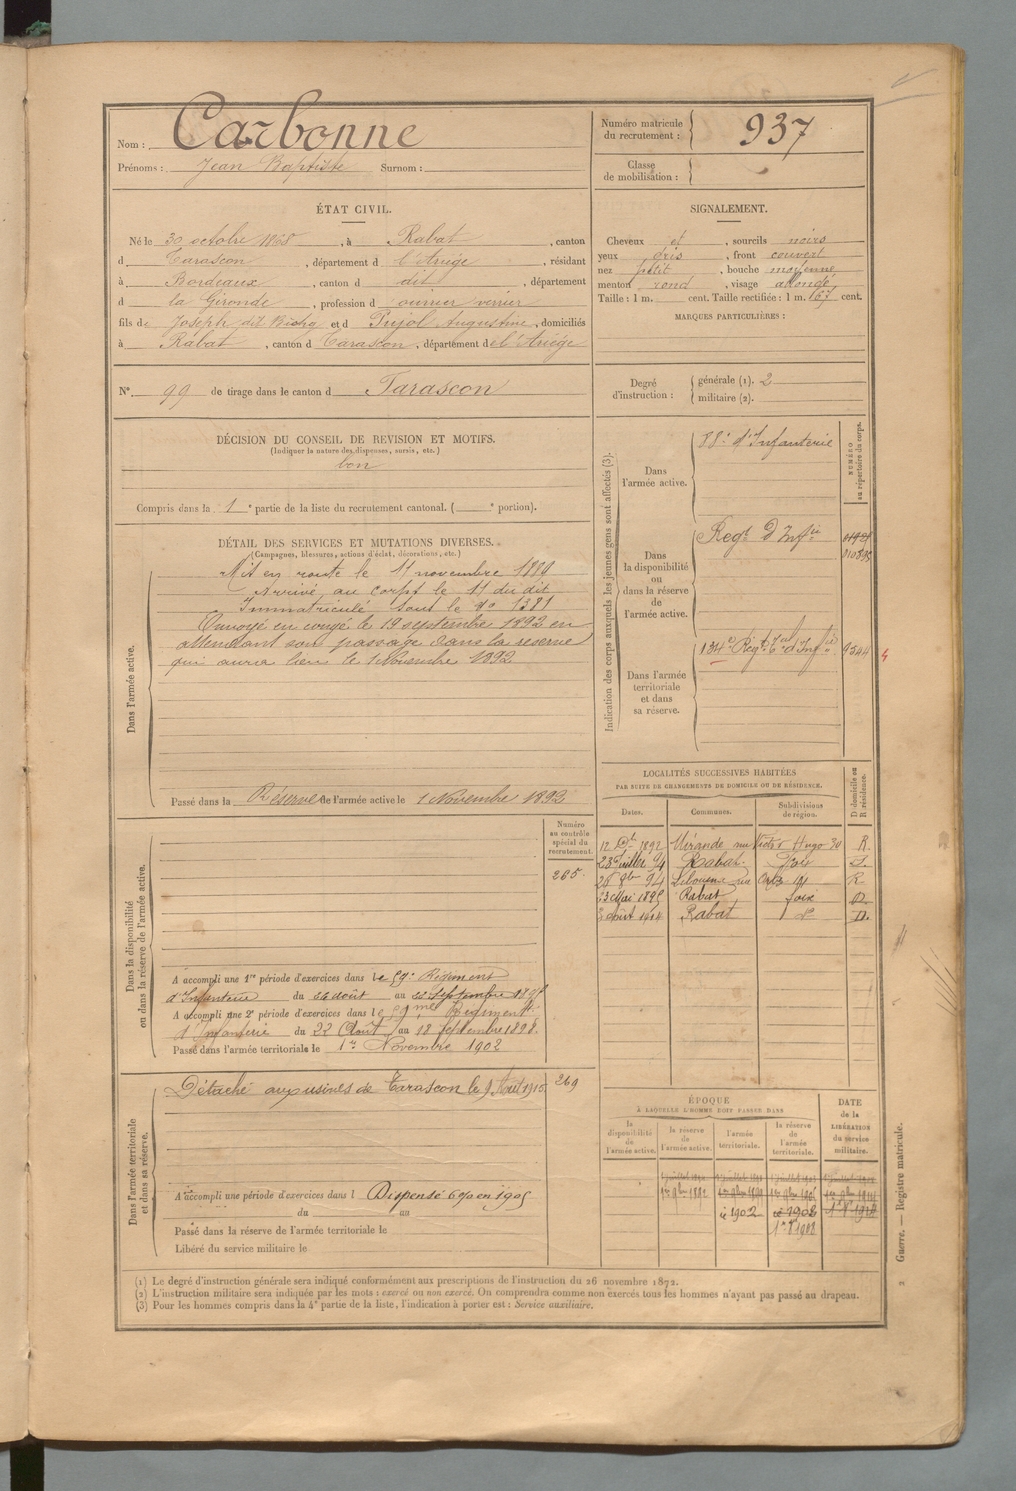 Nom : Carbonne
Prénoms : Jean Baptiste Surnom :
Numéro matricule du recrutement : 937
Classe de mobilisation :
ÉTAT CIVIL.
Né le 30 octobre 1868, à Rabat, canton
d Tarascon, département d l'Ariège, résidant
à Bordeaux, canton d dit, département
d la Gironde, profession d ouvrier verrier
fils de Joseph dit et d Pujol Augustine, domiciliés
à Rabat, canton d Tarascon, département de l'Ariège
N° 99 de tirage dans le canton d Tarascon
SIGNALEMENT.
Cheveux et, sourcils noirs
yeux gris, front couvert
nez petit, bouche moyenne
menton rond, visage allongé
Taille : 1 m. cent. Taille rectifiée : 1 m. 167 cent.
MARQUES PARTICULIÈRES :
Degré d'instruction : générale (1). 2
militaire (2).
DÉCISION DU CONSEIL DE REVISION ET MOTIFS.
(Indiquer la nature des dispenses, sursis, etc.)
bon
Compris dans la 1e partie de la liste du recrutement cantonal. ( e portion).
DÉTAIL DES SERVICES ET MUTATIONS DIVERSES.
(Campagnes, blessures, actions d'éclat, décorations, etc.)
Dans l'armée active.
Mis en route le 11 novembre 1889
Arrivé au corps le 11 du dit
Immatriculé sous le No 1381
Envoyé en congé le 19 septembre 1892 en
attendant son passage dans la réserve
qui aura lieu le 1 Novembre 1892
Passé dans la Réserve de l'armée active le 1 Novembre 1892
Indication des corps auxquels les jeunes gens sont affectés (3).
NUMÉRO au répertoire du corps.
Dans l'armée active.
88e d'Infanterie
Dans la disponibilité ou dans la réserve de l'armée active.
Regt d'Infie
Dans l'armée territoriale et dans sa réserve.
134e Regt Tal d'Infie 9544
LOCALITÉS SUCCESSIVES HABITÉES
PAR SUITE DE CHANGEMENTS DE DOMICILE OU DE RÉSIDENCE.
Dates. Communes. Subdivisions de région. D domicile ou R résidence.
12 1892 Mirande rue Victor Hugo 30 R.
23 Juillet 94 Rabat Foix
26 8bre 94 191 R.
13 Mai 1895 Rabat foix D.
Août Rabat do D.
Dans la disponibilité ou dans la réserve de l'armée active.
Numéro au contrôle spécial du recrutement.
265.
A accompli une 1re période d'exercices dans le 59e Régiment
d'Infanterie du 26 août au 22 Septembre
A accompli une 2e période d'exercices dans le 59me Régiment
d'Infanterie du 22 Août au 18 septembre 1898.
Passé dans l'armée territoriale le 1er Novembre 1902
Dans l'armée territoriale et dans sa réserve.
Détaché aux usines de Tarascon le 9 Août 1915 269
A accompli une période d'exercices dans l Dispensé en 1905
du au
Passé dans la réserve de l'armée territoriale le
Libéré du service militaire le
ÉPOQUE
À LAQUELLE L'HOMME DOIT PASSER DANS
la disponibilité de l'armée active. la réserve de l'armée active. l'armée territoriale. la réserve de l'armée territoriale. DATE de la LIBÉRATION du service militaire.
1902 1908
(1) Le degré d'instruction générale sera indiqué conformément aux prescriptions de l'instruction du 26 novembre 1872.
(2) L'instruction militaire sera indiquée par les mots : exercé ou non exercé. On comprendra comme non exercés tous les hommes n'ayant pas passé au drapeau.
(3) Pour les hommes compris dans la 4e partie de la liste, l'indication à porter est : Service auxiliaire.
2 Guerre. — Registre matricule.